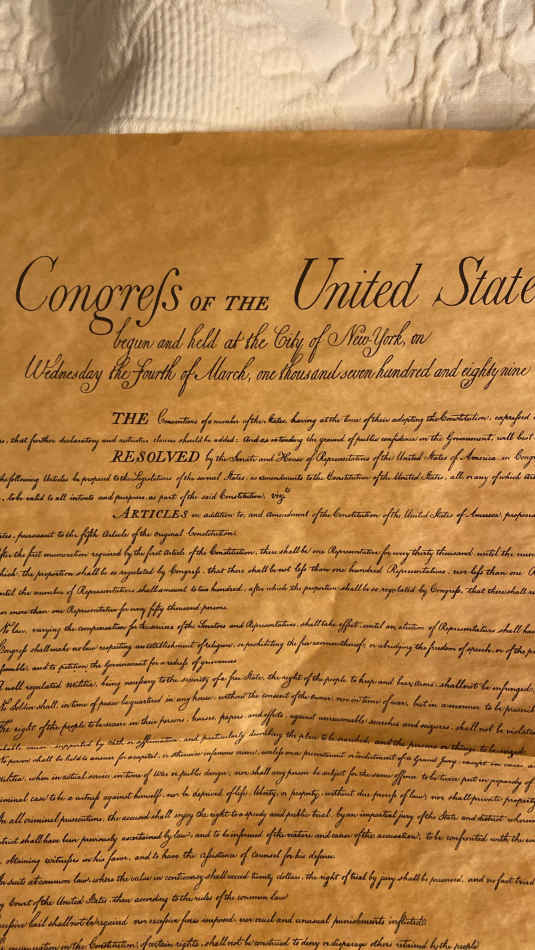 Congreſs OF THE United State
begun and held at the City of New-York, on
Wednesday the fourth of March, one thousand seven hundred and eighty nine
THE Conventions of a number of the States, having at the time of their adopting the Constitution, expressed
that further declaratory and restrictive clauses should be added: And as extending the ground of public confidence in the Government, will best
RESOLVED by the Senate and House of Representatives of the United States of America, in Congr
the following Articles be proposed to the Legislatures of the several States, as amendments to the Constitution of the United States, all, or any of which
to be valid to all intents and purposes, as part of the said Constitution; vizt
ARTICLES in addition to, and Amendment of the Constitution of the United States of America, propose
pursuant to the fifth Article of the original Constitution.
the first enumeration required by the first Article of the Constitution, there shall be one Representative for every thirty thousand, until the num
which, the proportion shall be so regulated by Congreſs, that there shall be not leſs than one hundred Representatives, nor leſs than one
until the number of Representatives shall amount to two hundred, after which the proportion shall be so regulated by Congreſs, that there shall
nor more than one Representative for every fifty thousand persons.
No law, varying the compensation for the services of the Senators and Representatives, shall take effect, until an election of Representatives shall ha
Congreſs shall make no law respecting an establishment of religion, or prohibiting the free exercise thereof; or abridging the freedom of speech, or of the p
and to petition the Government for a redreſs of grievances.
A well regulated Militia, being neceſsary to the security of a free State, the right of the people to keep and bear Arms, shall not be infringed.
No Soldier shall, in time of peace be quartered in any house, without the consent of the Owner, nor in time of war, but in a manner to be prescrib
The right of the people to be secure in their persons, houses, papers, and effects, against unreasonable searches and seizures, shall not be violated
cause, supported by Oath or affirmation, and particularly describing the place to be searched, and the persons or things to be seized.
No person shall be held to answer for a capital, or otherwise infamous crime, unleſs on a presentment or indictment of a Grand Jury, except in cases
Militia, when in actual service in time of War or public danger; nor shall any person be subject for the same offence to be twice put in jeopardy of
criminal case to be a witneſs against himself, nor be deprived of life, liberty, or property, without due proceſs of law; nor shall private property
In all criminal prosecutions, the accused shall enjoy the right to a speedy and public trial, by an impartial jury of the State and district wherein
which district shall have been previously ascertained by law, and to be informed of the nature and cause of the accusation; to be confronted with the
obtaining witneſses in his favor, and to have the aſsistance of counsel for his defence.
In suits at common law, where the value in controversy shall exceed twenty dollars, the right of trial by jury shall be preserved, and no fact tried
Court of the United States, than according to the rules of the common law.
Exceſsive bail shall not be required, nor exceſsive fines imposed, nor cruel and unusual punishments inflicted.
The enumeration in the Constitution, of certain rights, shall not be construed to deny or disparage others retained by the people.